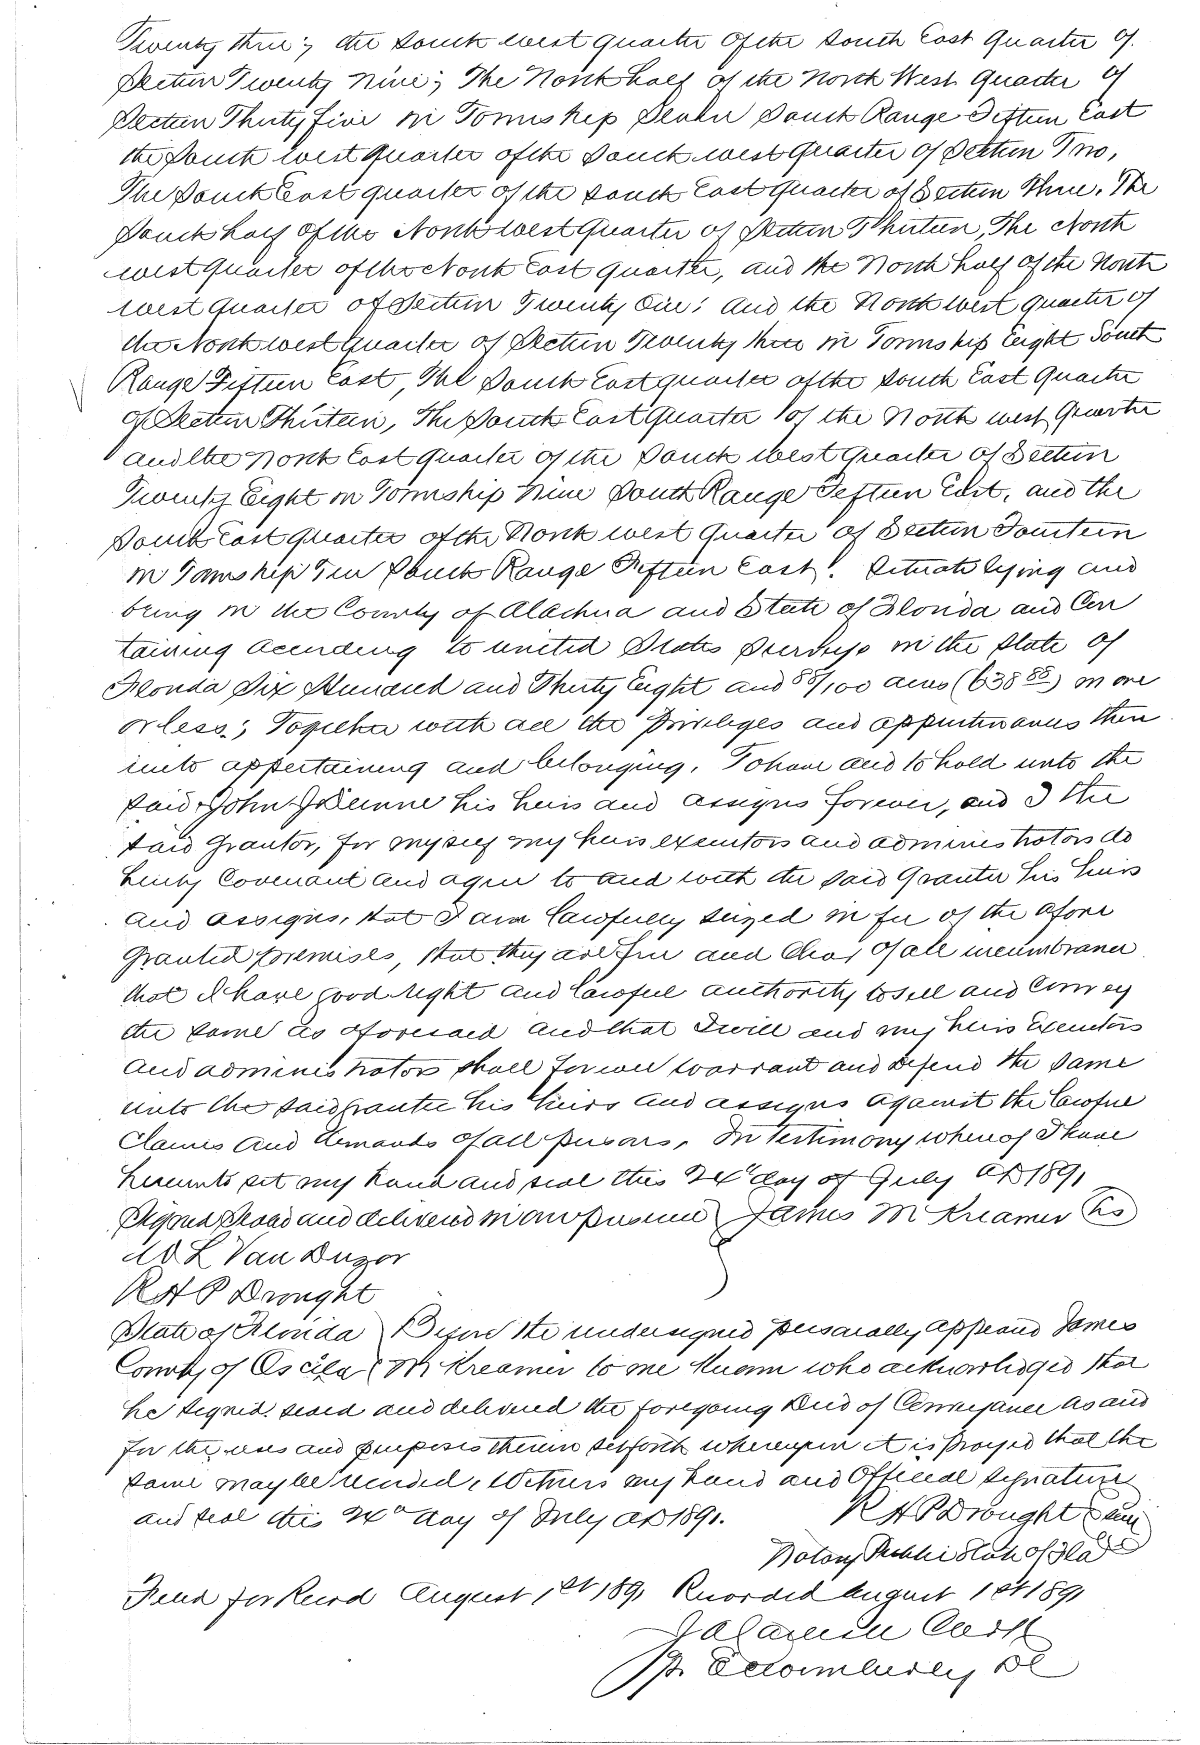 Twenty three; the South west quarter of the South East Quarter of
Section Twenty Nine; The North half of the North West Quarter of
Section Thirty five in Township Seven South Range Fifteen East
the South west Quarter of the South west Quarter of Section Two,
The South East quarter of the South East Quarter of Section Three. The
South half of the North west Quarter of Section Thirteen, The North
west Quarter of the North East quarter, and the North half of the North
west Quarter of Section Twenty One; and the North west quarter of
the North west Quarter of Section Twenty three in Township Eight South
Range Fifteen East, The South East quarter of the South East Quarter
of Section Thirteen, The South East Quarter of the North west Quarter
and the North East Quarter of the South west Quarter of Section
Twenty Eight in Township Nine South Range Fifteen East, and the
South East Quarter of the North west Quarter of Section Fourteen
in Township Ten South Range Fifteen East. Situate lying and
being in the County of Alachua and State of Florida and Con
taining according to united States Surveys in the State of
Florida Six Hundred and Thirty Eight and 88/100 acres (638 88) more
or less; Together with all the privileges and appurtenances there
unto appertaining and belonging. To have and to hold unto the
said John his heirs and assigns forever, and I the
said Grantor, for myself my heirs executors and administrators do
hereby Covenant and agree to and with the said Grantee his heirs
and assigns, that I am lawfully seized in fee of the afore
Granted premises, that they are free and Clear of all incumbrance
that I have good right and lawful authority to sell and Convey
the same as aforesaid and that I will and my heirs Executors
and administrators shall forever warrant and defend the same
unto the said Grantee his heirs and assigns against the lawful
Claims and demands of all persons. In Testimony whereof I have
hereunto set my hand and seal this 24th day of July AD 1891
Signed Sealed and delivered in our presence } James M Kreamer (LS)
W L Van Duzor
R H P Drought
State of Florida } Before the undersigned personally appeared James
County of Oscila } M Kreamer to me known who acknowledged that
he signed sealed and delivered the foregoing Deed of Conveyance as and
for the uses and purposes therein set forth whereupon it is prayed that the
same may be recorded. Witness my hand and Official signature
and seal this 24th day of July AD 1891.
R H P Drought Seal
Notary Public State of Fla
Filed for Record August 1st 1891 Recorded August 1st 1891
Clerk
pr DC